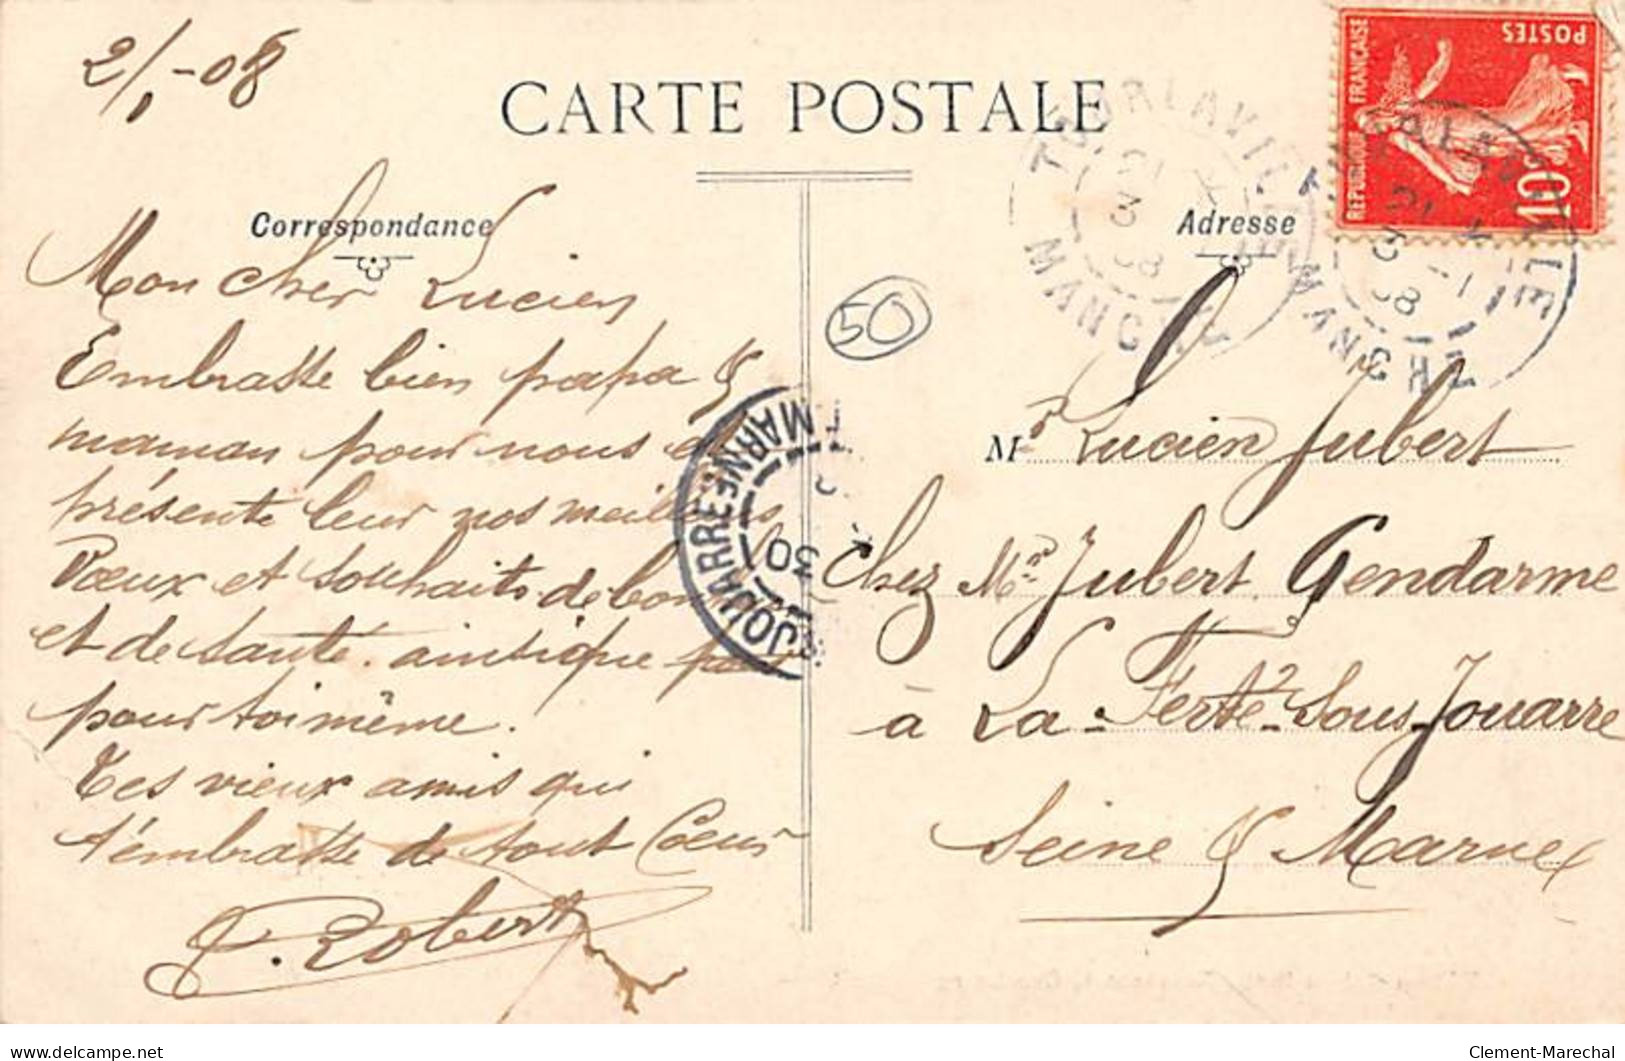 2/1-08
CARTE POSTALE
Correspondance
Adresse
RÉPUBLIQUE FRANÇAISE
POSTES
10
TOURLAVILLE
MANCHE
3
08
TOURLAVILLE
MANCHE
3
08
50
Mon cher Lucien
Embrasse bien papa &
maman pour nous et
présente leur nos meilleurs
Vœux et souhaits de bonheur
et de santé. ainsique
pour toi même.
Tes vieux amis qui
t'embrasse de tout Cœur
Robert
JOUARRE
MARNE
30
Mr Lucien Jubert
Chez Mr Jubert Gendarme
à La-Ferté-Sous-Jouarre
Seine & Marne
Clement-Marechal